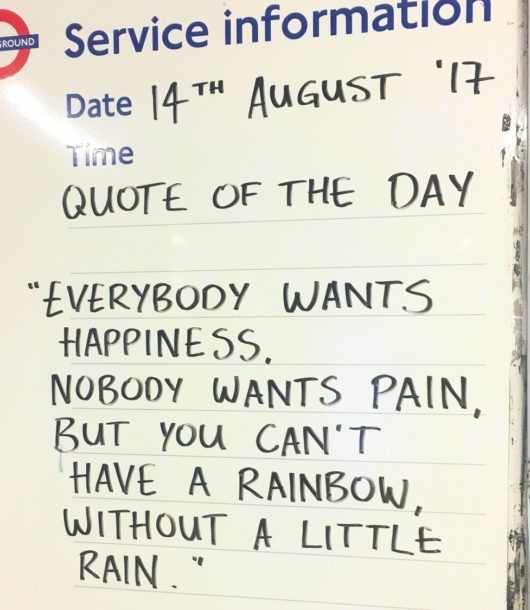 Service information
ROUND
Date 14TH AUGUST '17
Time
QUOTE OF THE DAY
"EVERYBODY WANTS
HAPPINESS,
NOBODY WANTS PAIN,
BUT YOU CAN'T
HAVE A RAINBOW,
WITHOUT A LITTLE
RAIN."